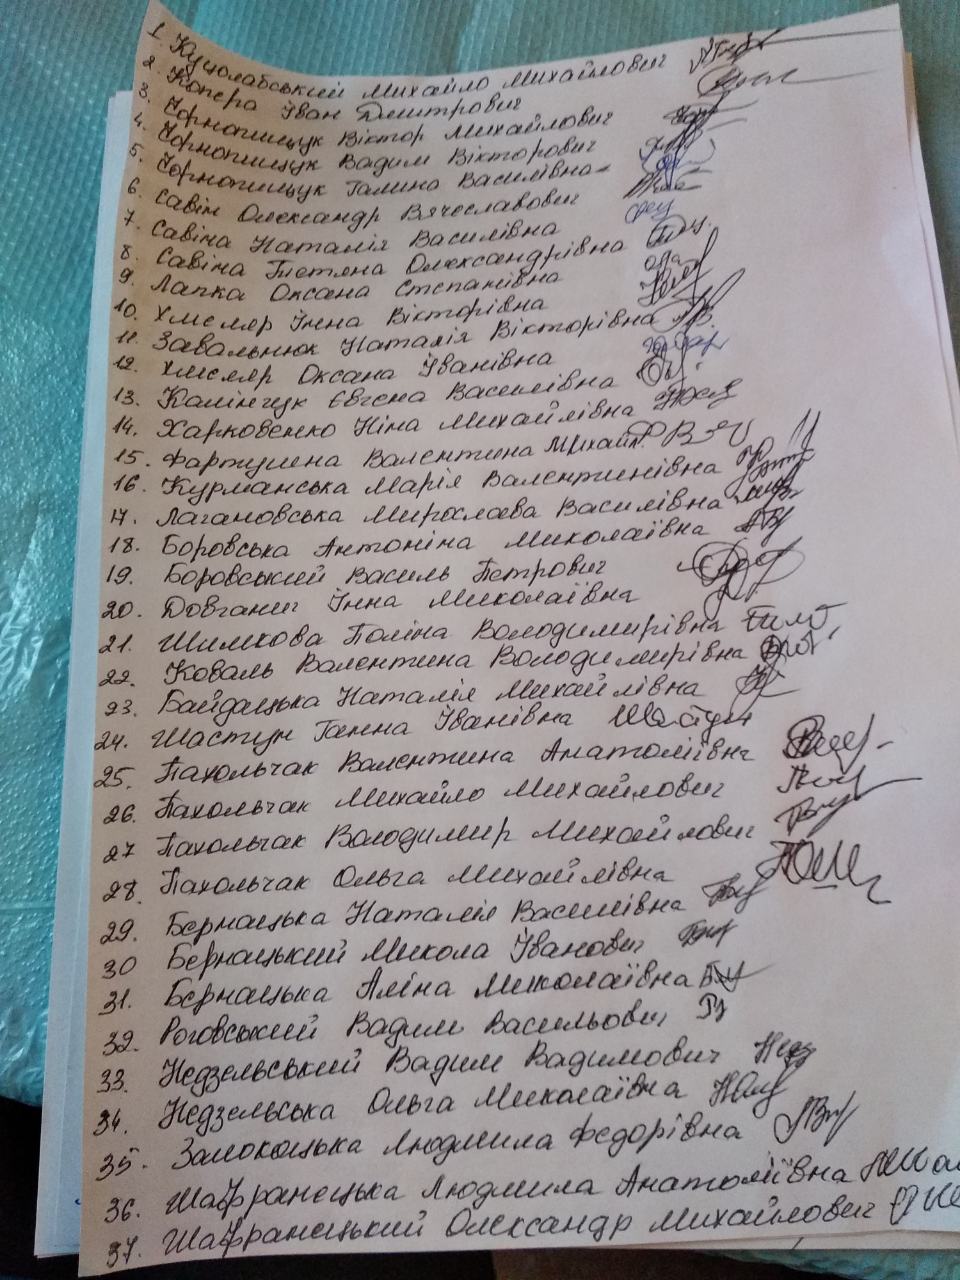 1. Куцолабський Михайло Михайлович
2. Копера Іван Дмитрович
3. Чорнопищук Віктор Михайлович
4. Чорнопищук Вадим Вікторович
5. Чорнопищук Галина Василівна
6. Савін Олександр Вячеславович
7. Савіна Наталія Василівна
8. Савіна Тетяна Олександрівна
9. Лапка Оксана Степанівна
10. Хмеляр Інна Вікторівна
11. Завальнюк Наталія Вікторівна
12. Хмеляр Оксана Іванівна
13. Калінчук Євгена Василівна
14. Харковенко Ніна Михайлівна
15. Фартушена Валентина Михайл.
16. Курманська Марія Валентинівна
17. Лагановська Мирослава Василівна
18. Боровська Антоніна Миколаївна
19. Боровський Василь Петрович
20. Довганич Інна Миколаївна
21. Шимкова Поліна Володимирівна
22. Коваль Валентина Володимирівна
23. Байдацька Наталія Михайлівна
24. Шастун Ганна Іванівна
25. Пахольчак Валентина Анатоліївна
26. Пахольчак Михайло Михайлович
27 Пахольчак Володимир Михайлович
28. Пахольчак Ольга Михайлівна
29. Бернацька Наталія Василівна
30 Бернацький Микола Іванович
31. Бернацька Аліна Миколаївна
32. Роговський Вадим Васильович
33. Недзельський Вадим Вадимович
34. Недзельська Ольга Миколаївна
35. Залокоцька Людмила Федорівна
36. Шафранецька Людмила Анатоліївна
37. Шафранецький Олександр Михайлович